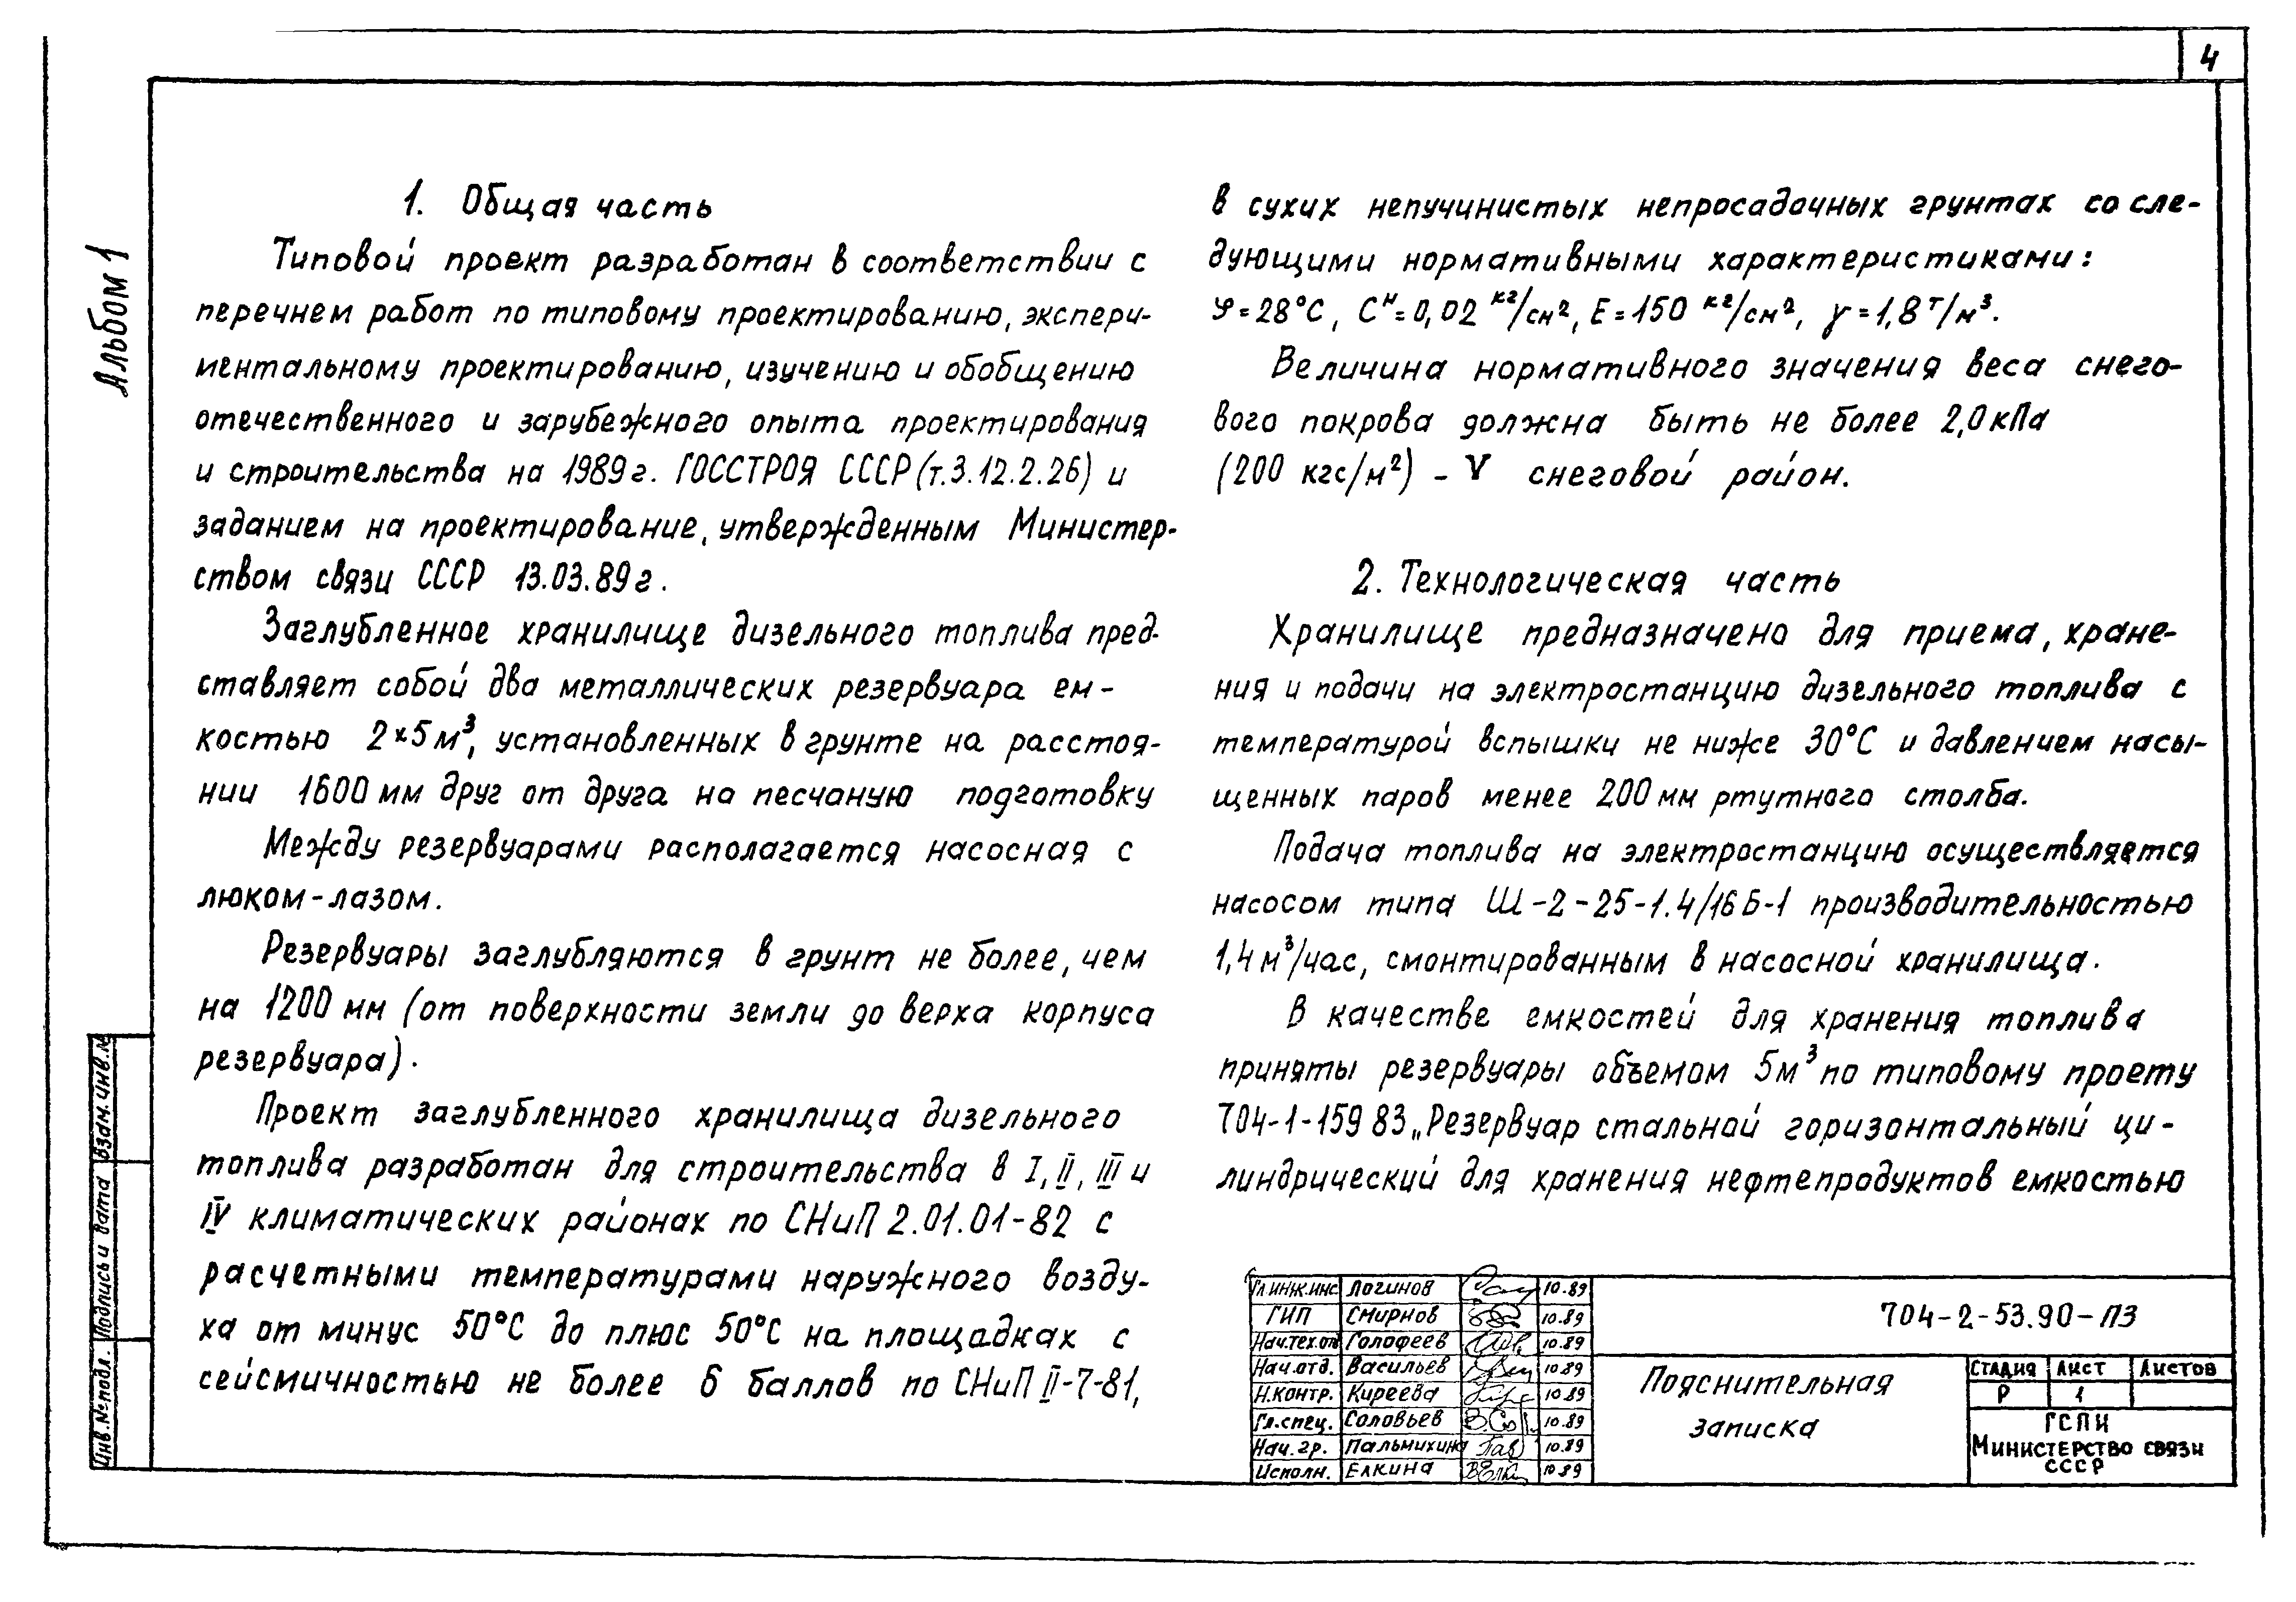 4
Альбом 1
1. Общая часть
Типовой проект разработан в соответствии с
перечнем работ по типовому проектированию, экспери-
ментальному проектированию, изучению и обобщению
отечественного и зарубежного опыта проектирования
и строительства на 1989г. ГОССТРОЯ СССР (т.3.12.2.26) и
заданием на проектирование, утвержденным Министер-
ством связи СССР 13.03.89г.
Заглубленное хранилище дизельного топлива пред-
ставляет собой два металлических резервуара ем-
костью 2×5м³, установленных в грунте на расстоя-
нии 1600 мм друг от друга на песчаную подготовку
Между резервуарами располагается насосная с
люком-лазом.
Резервуары заглубляются в грунт не более, чем
на 1200 мм (от поверхности земли до верха корпуса
резервуара).
Проект заглубленного хранилища дизельного
топлива разработан для строительства в I, II, III и
IV климатических районах по СНиП 2.01.01-82 с
расчетными температурами наружного возду-
ха от минус 50°С до плюс 50°С на площадках с
сейсмичностью не более 6 баллов по СНиП II-7-81,
в сухих непучинистых непросадочных грунтах со сле-
дующими нормативными характеристиками:
φ=28°С, Cᴴ=0,02 кг/см², E=150 кг/см², γ=1,8 т/м³.
Величина нормативного значения веса снего-
вого покрова должна быть не более 2,0 кПа
(200 кгс/м²) - V снеговой район.
2. Технологическая часть
Хранилище предназначено для приема, хране-
ния и подачи на электростанцию дизельного топлива с
температурой вспышки не ниже 30°С и давлением насы-
щенных паров менее 200 мм ртутного столба.
Подача топлива на электростанцию осуществляется
насосом типа Ш-2-25-1.4/16Б-1 производительностью
1,4 м³/час, смонтированным в насосной хранилища.
В качестве емкостей для хранения топлива
приняты резервуары объемом 5м³ по типовому проету
704-1-159 83 „Резервуар стальной горизонтальный ци-
линдрический для хранения нефтепродуктов емкостью
Взам. инв. №
Подпись и дата
Инв. № подл.
Гл.инж.инс Логинов 10.89
ГИП Смирнов 10.89
Нач.тех.от Голофеев 10.89
Нач.отд. Васильев 10.89
Н.контр. Киреева 10.89
Гл.спец. Соловьев 10.89
Нач.гр. Пальмихина 10.89
Исполн. Елкина 10.89
704-2-53.90-ПЗ
Пояснительная
записка
Стадия Лист Листов
Р 1
ГСПИ
Министерство связи
СССР